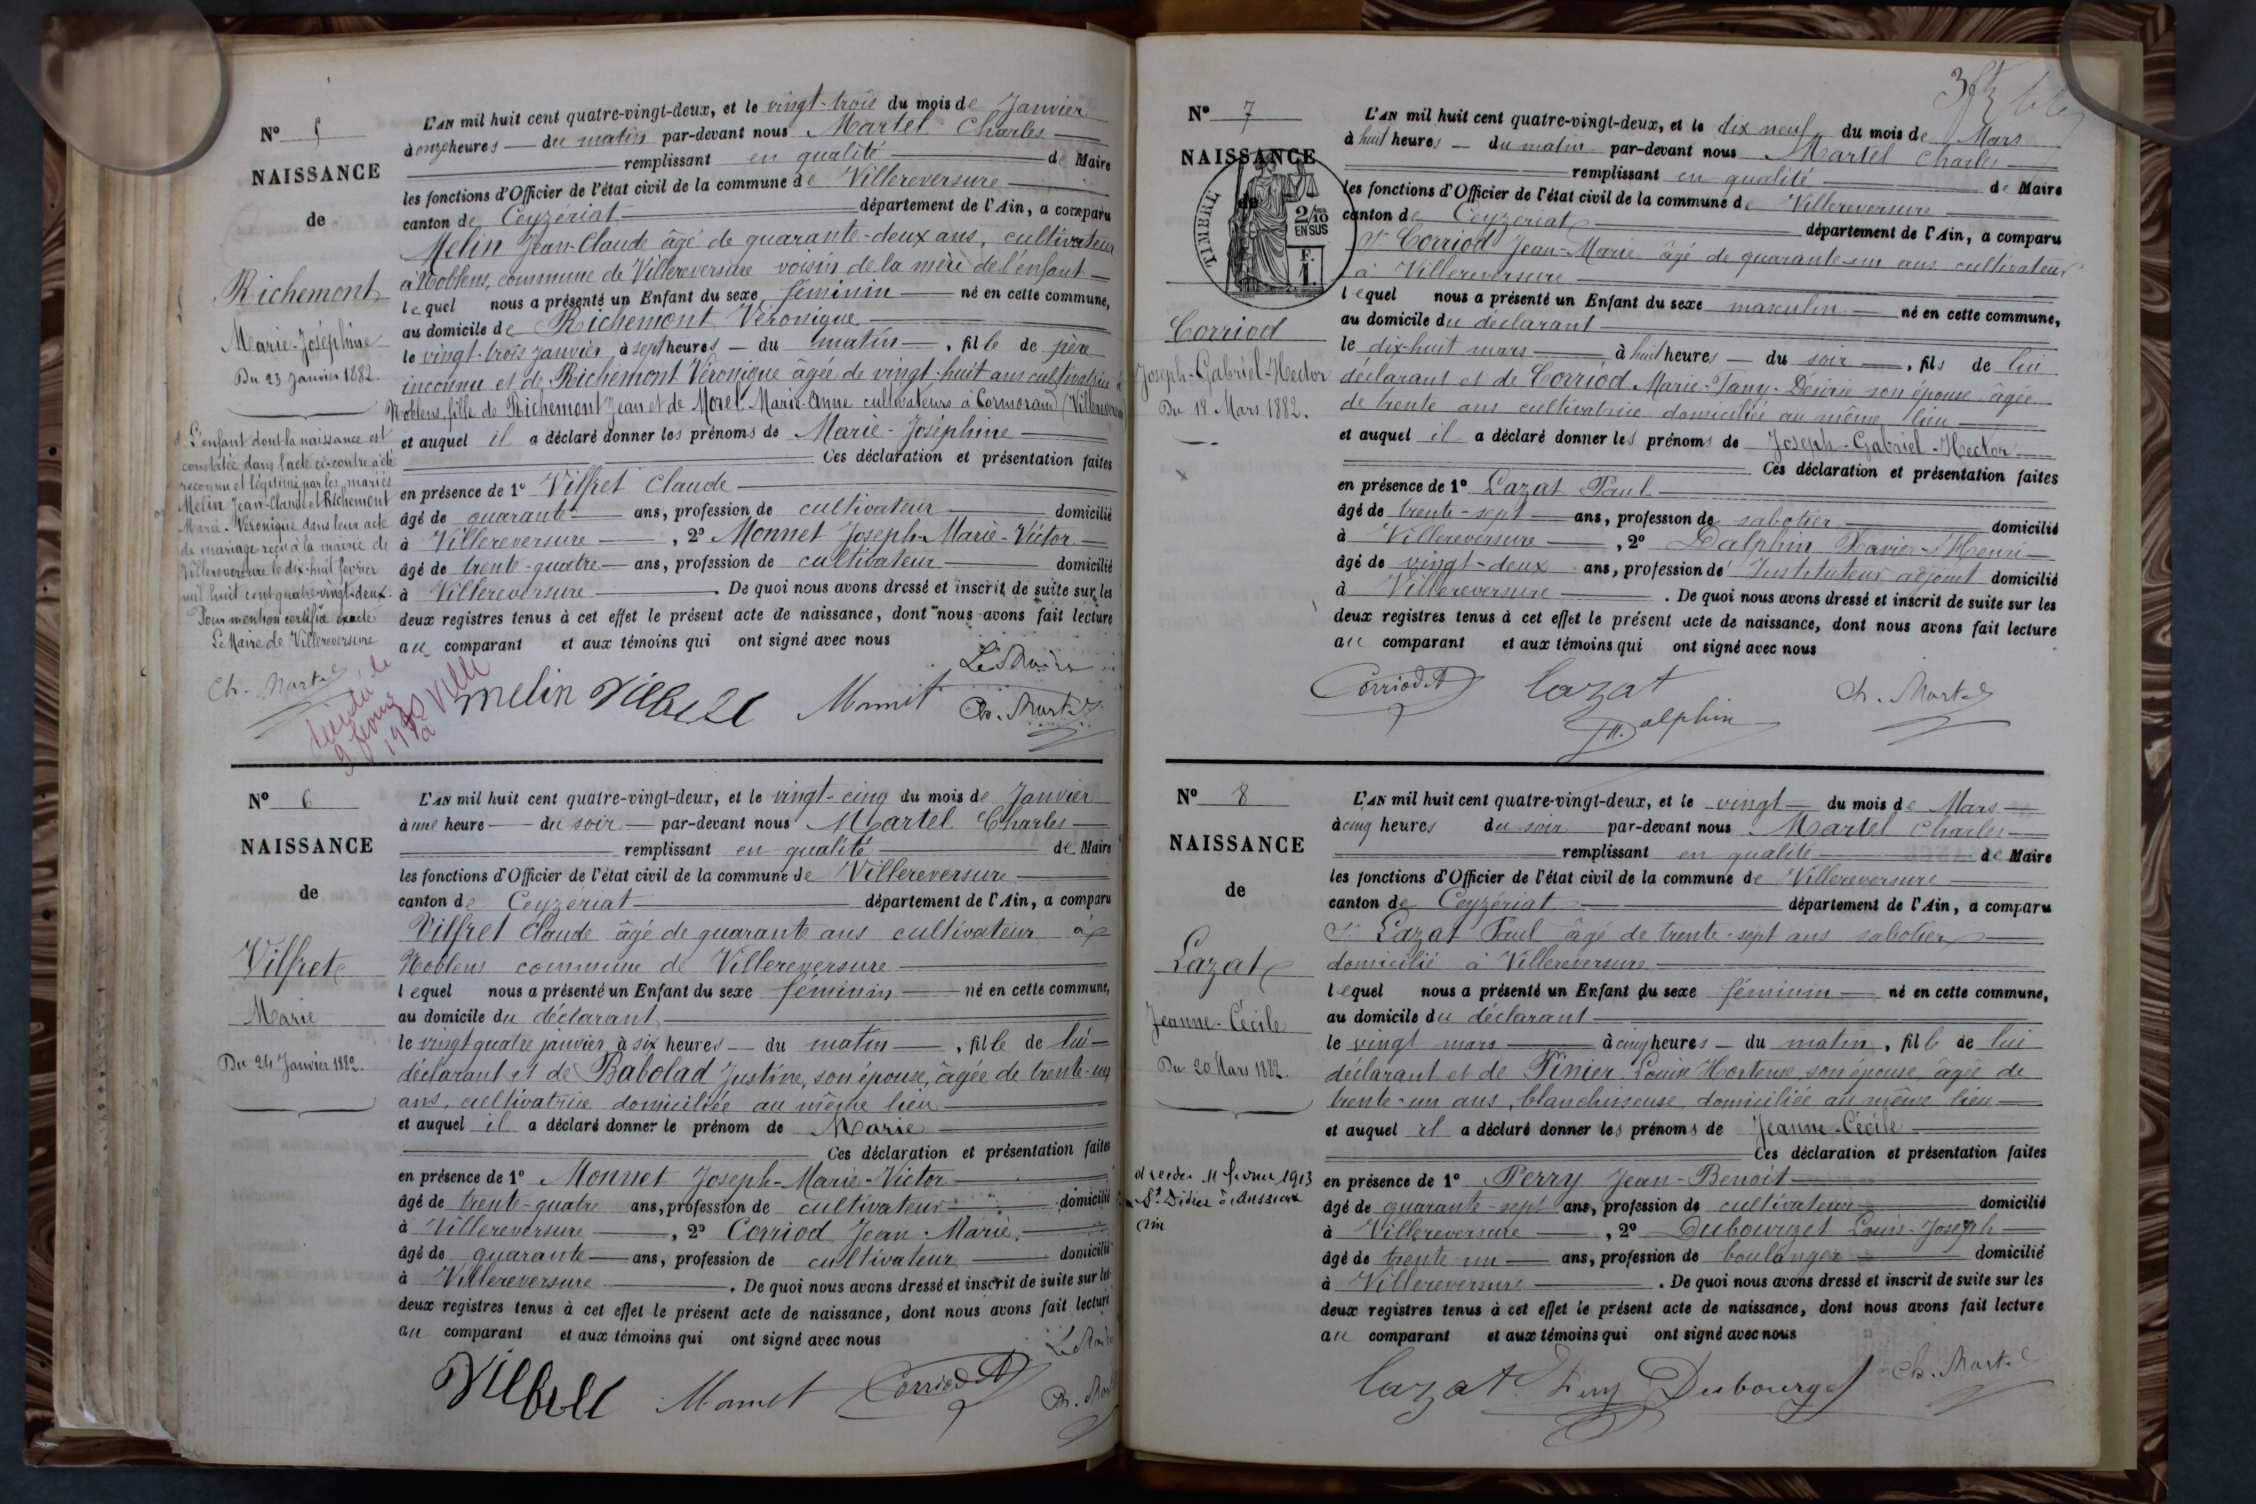 N° 5
NAISSANCE
de
Richemont
Marie-Joséphine
Du 23 Janvier 1882.
L'enfant dont la naissance est
constatée dans l'acte ci-contre a été
reconnu et légitimé par les mariés
Melin Jean-Claude et Richemont
Marie-Véronique dans leur acte
de mariage reçu à la mairie de
Villereversure le dix-huit février
mil huit cent quatre-vingt-deux.
Pour mention certifiée exacte
Le Maire de Villereversure
Ch. Martel
L'AN mil huit cent quatre-vingt-deux, et le vingt-trois du mois de Janvier
à onze heures du matin par-devant nous Martel Charles
remplissant en qualité de Maire
les fonctions d'Officier de l'état civil de la commune de Villereversure
canton de Ceyzériat département de l'Ain, a comparu
Melin Jean-Claude âgé de quarante-deux ans, cultivateur
à Noblens, commune de Villereversure voisin de la mère de l'enfant
lequel nous a présenté un Enfant du sexe féminin né en cette commune,
au domicile de Richemont Véronique
le vingt-trois janvier à sept heures du matin, fille de père
inconnu et de Richemont Véronique âgée de vingt-huit ans cultivatrice à
Noblens, fille de Richemont Jean et de Morel Marie-Anne cultivateurs à Cormorand (Villereversure)
et auquel il a déclaré donner les prénoms de Marie-Joséphine
Ces déclaration et présentation faites
en présence de 1° Vilfret Claude
âgé de quarante ans, profession de cultivateur domicilié
à Villereversure, 2° Monnet Joseph-Marie-Victor
âgé de trente-quatre ans, profession de cultivateur domicilié
à Villereversure. De quoi nous avons dressé et inscrit de suite sur les
deux registres tenus à cet effet le présent acte de naissance, dont nous avons fait lecture
au comparant et aux témoins qui ont signé avec nous
Le Maire
melin Monnet Ch. Martel
N° 6
NAISSANCE
de
Vilfret
Marie
Du 24 Janvier 1882.
L'AN mil huit cent quatre-vingt-deux, et le vingt-cinq du mois de Janvier
à une heure du soir par-devant nous Martel Charles
remplissant en qualité de Maire
les fonctions d'Officier de l'état civil de la commune de Villereversure
canton de Ceyzériat département de l'Ain, a comparu
Vilfret Claude âgé de quarante ans cultivateur à
Noblens commune de Villereversure
lequel nous a présenté un Enfant du sexe féminin né en cette commune,
au domicile du déclarant
le vingt quatre janvier à six heures du matin, fille de lui
déclarant et de Babolad Justine, son épouse, âgée de trente-un
ans, cultivatrice domiciliée au même lieu
et auquel il a déclaré donner le prénom de Marie
Ces déclaration et présentation faites
en présence de 1° Monnet Joseph-Marie-Victor
âgé de trente-quatre ans, profession de cultivateur domicilié
à Villereversure, 2° Corriod Jean-Marie,
âgé de quarante ans, profession de cultivateur domicilié
à Villereversure. De quoi nous avons dressé et inscrit de suite sur les
deux registres tenus à cet effet le présent acte de naissance, dont nous avons fait lecture
au comparant et aux témoins qui ont signé avec nous
Le Maire
Monnet Corriod Ch. Martel
N° 7
NAISSANCE
de
TIMBRE
2/10
EN SUS
F.
1.
Corriod
Joseph-Gabriel-Hector
Du 18 Mars 1882.
L'AN mil huit cent quatre-vingt-deux, et le dix neuf du mois de Mars
à huit heures du matin par-devant nous Martel Charles
remplissant en qualité de Maire
les fonctions d'Officier de l'état civil de la commune de Villereversure
canton de Ceyzériat département de l'Ain, a comparu
Sr Corriod Jean-Marie âgé de quarante-un ans cultivateur
à Villereversure
lequel nous a présenté un Enfant du sexe masculin né en cette commune,
au domicile du déclarant
le dix-huit mars à huit heures du soir, fils de lui
déclarant et de Corriod Marie-Fany-Désirée son épouse âgée
de trente ans cultivatrice domiciliée au même lieu
et auquel il a déclaré donner les prénoms de Joseph-Gabriel-Hector
Ces déclaration et présentation faites
en présence de 1° Lazat Paul
âgé de trente-sept ans, profession de sabotier domicilié
à Villereversure, 2° Dalphin Xavier-Henri
âgé de vingt-deux ans, profession de Instituteur adjoint domicilié
à Villereversure. De quoi nous avons dressé et inscrit de suite sur les
deux registres tenus à cet effet le présent acte de naissance, dont nous avons fait lecture
au comparant et aux témoins qui ont signé avec nous
Corriod Lazat Ch. Martel
H. Dalphin
N° 8
NAISSANCE
de
Lazat
Jeanne-Cécile
Du 20 Mars 1882.
décédée 11 février 1913
St Didier d'Aussiat
Ain
L'AN mil huit cent quatre-vingt-deux, et le vingt du mois de Mars
à cinq heures du soir par-devant nous Martel Charles
remplissant en qualité de Maire
les fonctions d'Officier de l'état civil de la commune de Villereversure
canton de Ceyzériat département de l'Ain, a comparu
Sr Lazat Paul âgé de trente-sept ans sabotier
domicilié à Villereversure
lequel nous a présenté un Enfant du sexe féminin né en cette commune,
au domicile du déclarant
le vingt mars à cinq heures du matin, fille de lui
déclarant et de Finier Louise Hortense, son épouse, âgée de
trente-un ans, blanchisseuse, domiciliée au même lieu
et auquel il a déclaré donner les prénoms de Jeanne-Cécile
Ces déclaration et présentation faites
en présence de 1° Perry Jean-Benoit
âgé de quarante-sept ans, profession de cultivateur domicilié
à Villereversure, 2° Dubourget Louis-Joseph
âgé de trente-un ans, profession de boulanger domicilié
à Villereversure. De quoi nous avons dressé et inscrit de suite sur les
deux registres tenus à cet effet le présent acte de naissance, dont nous avons fait lecture
au comparant et aux témoins qui ont signé avec nous
Lazat Dubourget Ch. Martel